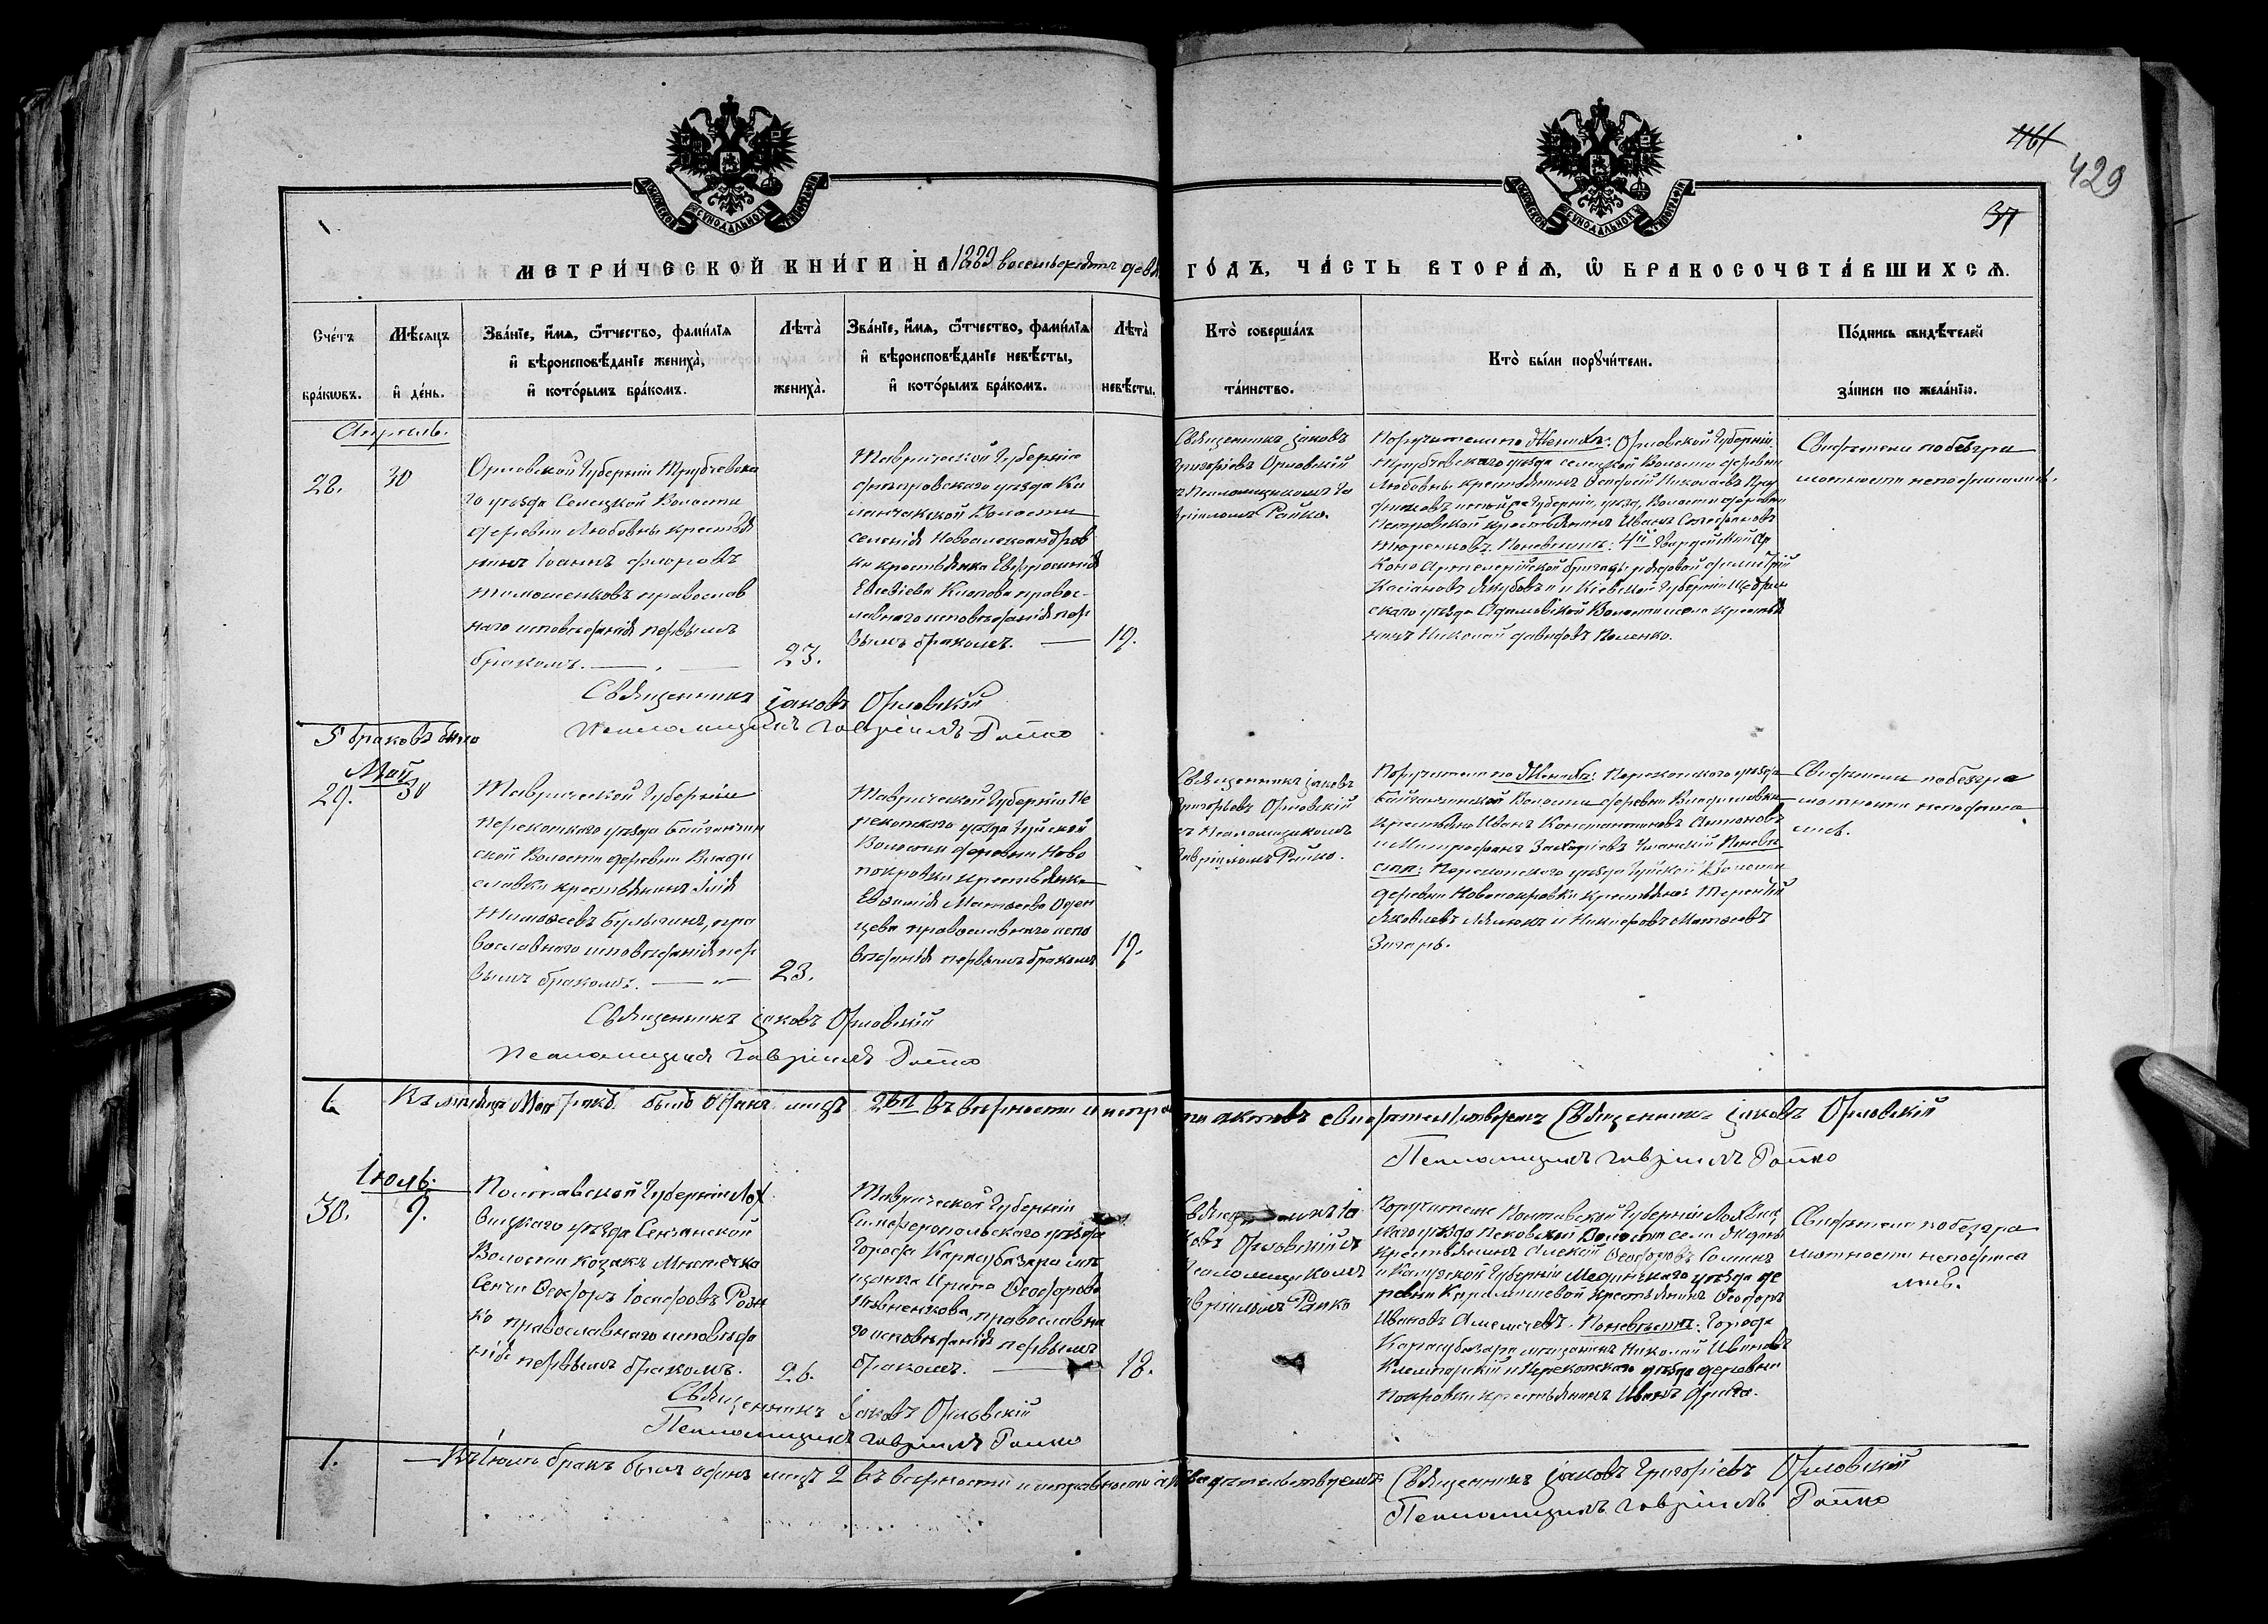 461
429
37
МЕТРИ́ЧЕСКОЙ КНИ́ГИ НА 1889 восемьдесятъ девя ГО́ДЪ, ЧА́СТЬ ВТОРА́Ѧ, Ѽ БРАКОСОЧЕТА́ВШИХСѦ.
Сче́тъ
бра́кѡвъ.
Мѣ́сѧцъ
и҆ де́нь.
Зва́нїе, и҆́мѧ, ѻ҆́тчество, фами́лїѧ
и҆ вѣроисповѣ́данїе жениха̀,
и҆ кото́рымъ бра́комъ.
Лѣта̀
жениха̀.
Зва́нїе, и҆́мѧ, ѻ҆́тчество, фами́лїѧ
и҆ вѣроисповѣ́данїе невѣ́сты,
и҆ кото́рымъ бра́комъ.
Лѣта̀
невѣ́сты.
Кто̀ соверша́лъ
та́инство.
Кто̀ бы́ли порꙋчи́тели.
По́дпись свидѣ́телей
за́писи по жела́нїю.
Апрѣль.
28.
30
Орловской Губерніи Трубчевска
го уѣзда Селецкой Волости
деревни Любовны крестья
нинъ Іоаннъ
православ
наго исповѣданія первымъ
бракомъ.
23.
Таврической Губерніи
Днѣпровского уѣзда Ка
ланчакской Волости
селенія Новоалександров
ки крестьянка Евфросинія
Евсевіева Клопова правос-
лавнаго исповѣданія пер
вымъ бракомъ.
19.
Священникъ Іаковъ
Григоріевъ Орловскій
съ Псаломщикомъ Га
вріиломъ Райко.
Поручители по Женихѣ: Орловской Губерніи
Трубчевскаго уѣзда Селецкой Волости деревни
Любовны крестьянинъ Николаевъ
той же Губерніи, уѣзд. Волости деревни
Петровской крестьянинъ Иванъ Стефановъ
По невѣстѣ: 4й Гвардейской
Артилерійской бригады рядовой Димитрій
Касіановъ Якубовъ и Кіевской Губерніи
скаго уѣзда Адамовской Волости крестья
нинъ Николай Давидовъ Поленко.
Свидѣтели по безгра
мотности неподписались.
Священникъ Іаковъ Орловскій
Псаломщикъ Гавріилъ Райко
5 браковъ было
Май
29.
30
Таврической Губерніи
Перекопскаго уѣзда
ской Волости деревни Влади
славки крестьянинъ Илія
Тимоѳеевъ Булыгинъ, пра
вославнаго исповѣданія пер
вымъ бракомъ.
23.
Таврической Губерніи Пе
рекопскаго уѣзда
Волости деревни Ново
покровки крестьянка
Евѳимія Матѳеева Оден
цева православнаго испо
вѣданія первымъ бракомъ
19.
Священникъ Іаковъ
Григоріевъ Орловскій
съ Псаломщикомъ
Гавріиломъ Райко.
Поручители по Женихѣ: Перекопскаго уѣзда
Волости деревни Владиславки
крестьяне Иванъ Константиновъ Антоновъ
и Митрофанъ Захаріевъ По невѣ
стѣ: Перекопскаго уѣзда Волости
деревни Новопокровки крестьяне: Терентій
Яковлевъ и Никифоръ Матѳеевъ
Загарь.
Свидѣтели по безгра
мотности неподписа
лись.
Священникъ Іаковъ Орловскій
Псаломщикъ Гавріилъ Райко
Въ мѣсяцѣ Маѣ бракъ былъ одинъ лицъ 2ва въ вѣрности и
актовъ свидѣтельствуемъ Священникъ Іаковъ Орловскій
Псаломщикъ Гавріилъ Райко
Іюль.
30.
9.
Полтавской Губерніи Лох
вицкаго уѣзда Сенчанской
Волости Козакъ Мѣстечка
Сенчи Ѳеодоръ Іосифовъ
ко православнаго исповѣда
нія первымъ бракомъ.
26.
Таврической Губерніи
Симферопольскаго уѣзда
Города Карасубазара мѣ
щанка Ирина Ѳеодорова
православна
го исповѣданія первымъ
бракомъ.
18.
Священникъ Іа
ковъ Орловскій съ
Псаломщикомъ
Гавріиломъ Райко
Поручители Полтавской Губерніи Лохвиц
каго уѣзда Песковской Волости села
крестьянинъ Алексѣй Ѳеодоровъ
и Калужской Губерніи Медынскаго уѣзда де
ревни крестьянинъ Ѳеодоръ
Ивановъ По невѣстѣ: Города
Карасубазара мѣщанинъ Николай Ивановъ
и Перекопскаго уѣзда деревни
Покровки крестьянинъ Иванъ
Свидѣтели по безгра
мотности неподписа
лись.
Священникъ Іаковъ Орловскій
Псаломщикъ Гавріилъ Райко
1.
Въ Іюлѣ бракъ былъ одинъ лицъ 2 въ вѣрности и исправности свидѣтельствуемъ: Священникъ Іаковъ Григоріевъ Орловскій
Псаломщикъ Гавріилъ Райко